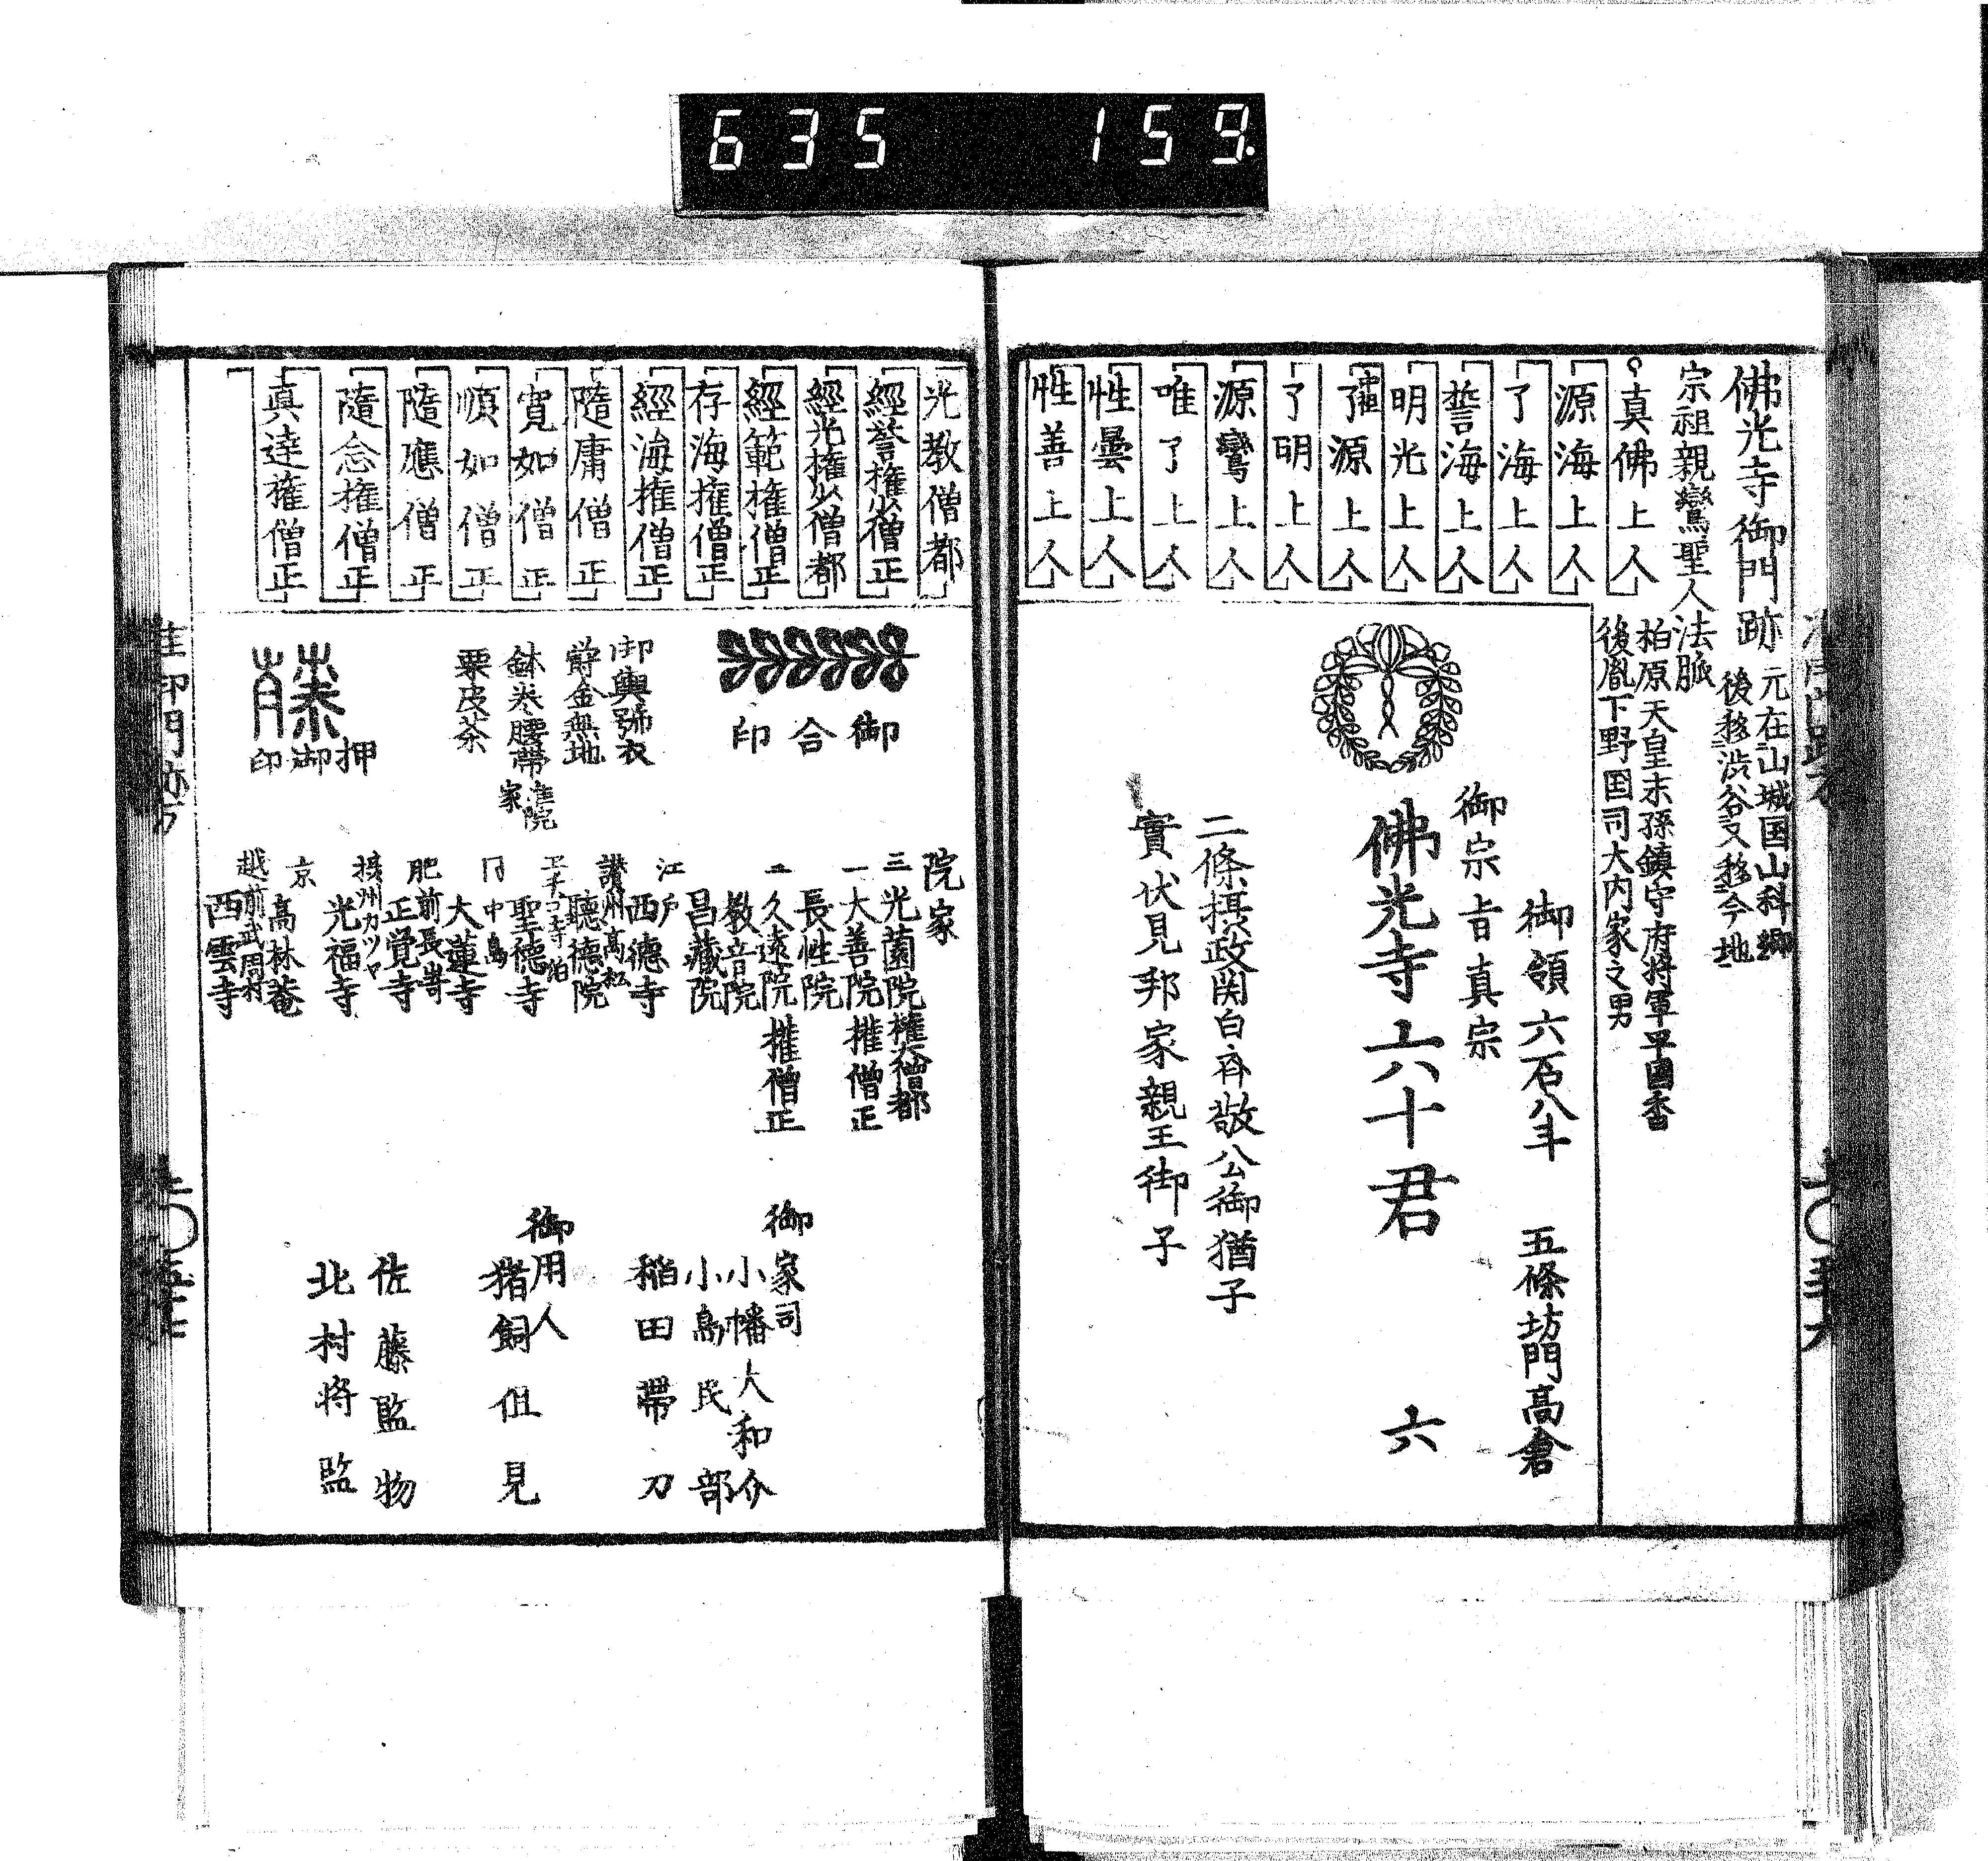 635 159
佛光寺御門跡
元在山城国山科郷
後移渋谷又移今地
宗祖親鸞聖人法脈
柏原天皇末孫鎮守府将軍平國香
後胤下野国司大内家之男
真佛上人
源海上人
了海上人
誓海上人
明光上人
了源上人
了明上人
源鸞上人
唯了上人
性曇上人
性善上人
御領六石八斗 五條坊門高倉
御宗旨真宗
佛光寺六十君 六
二條摂政関白斉敬公御猶子
實伏見邦家親王御子
光教僧都
經誉権少僧正
經光権少僧都
經範権僧正
存海権僧正
經海権僧正
隨庸僧正
寛如僧正
順如僧正
隨應僧正
隨念権僧正
真達権僧正
御合印
御輿舁衣
欝金無地
鉢巻腰帯
院家
栗皮茶
押
御
印
院家
三光薗院権大僧都
一大善院権僧正
長性院
二久遠院権僧正
教音院
昌蔵院
江戸
西徳寺
讃州高松
聴徳院
聖徳寺
中島
大蓮寺
肥前長嵜
正覚寺
摂州カツマ
光福寺
京
高林菴
越前武周村
西雲寺
御家司
小幡大和介
小島民部
稲田帯刀
御用人
猪飼但見
佐藤監物
北村将監